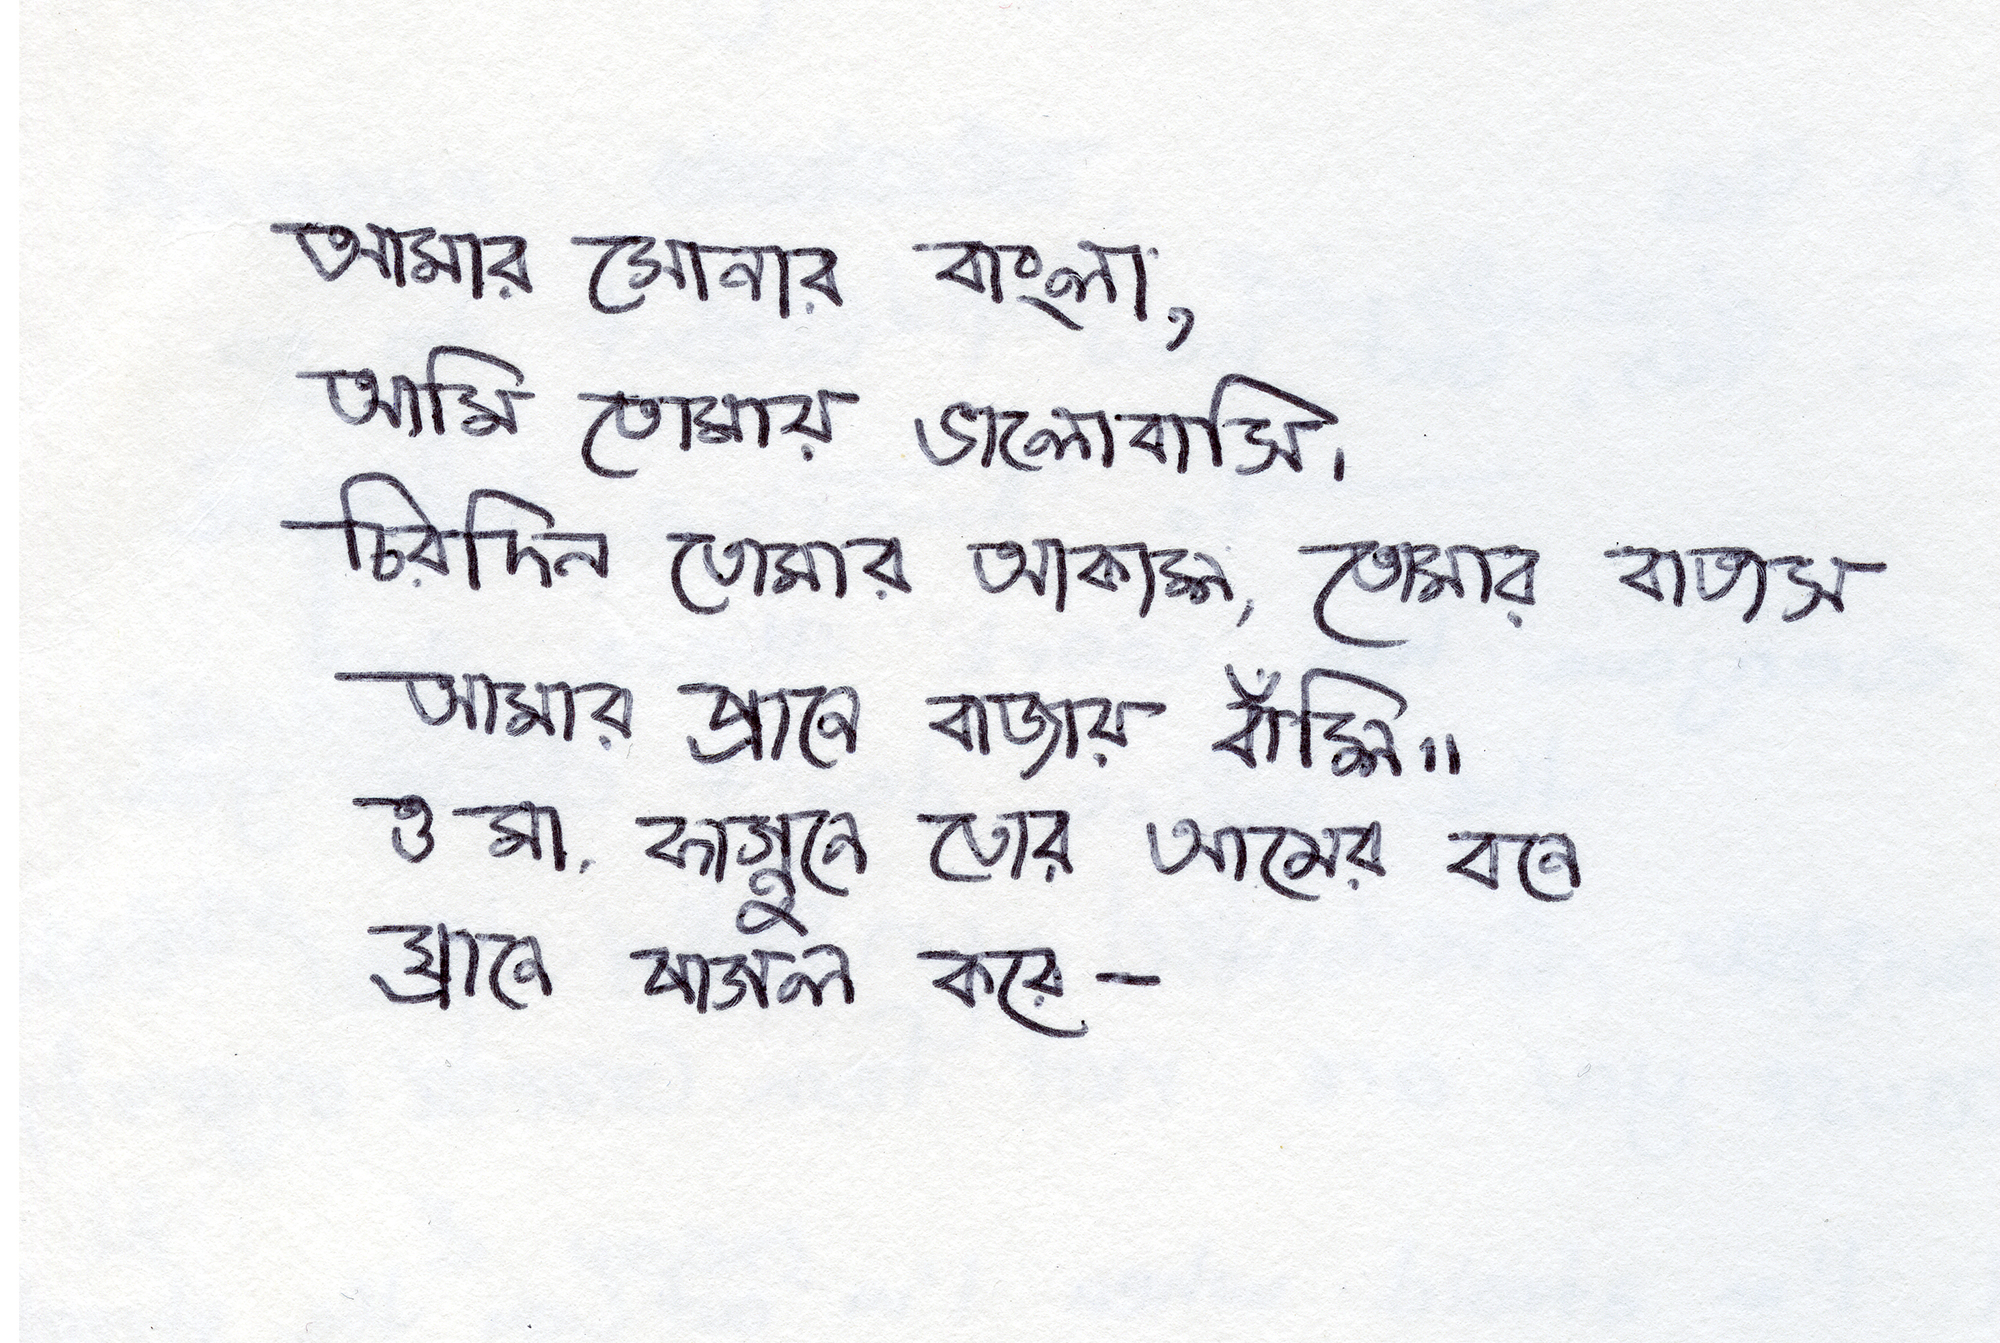 আমার সোনার বাংলা,
আমি তোমায় ভালোবাসি।
চিরদিন তোমার আকাশ, তোমার বাতাস
আমার প্রানে বাজায় বাঁশি॥
ও মা, ফাগুনে তোর আমের বনে
ঘ্রানে পাগল করে—